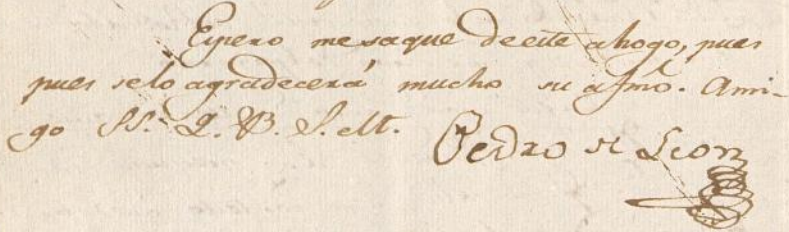 Espero me saque de este ahogo, pues
pues se lo agradecerá mucho su afmō. Ami-
go SS. Q. B. S. M.
Pedro de Leon